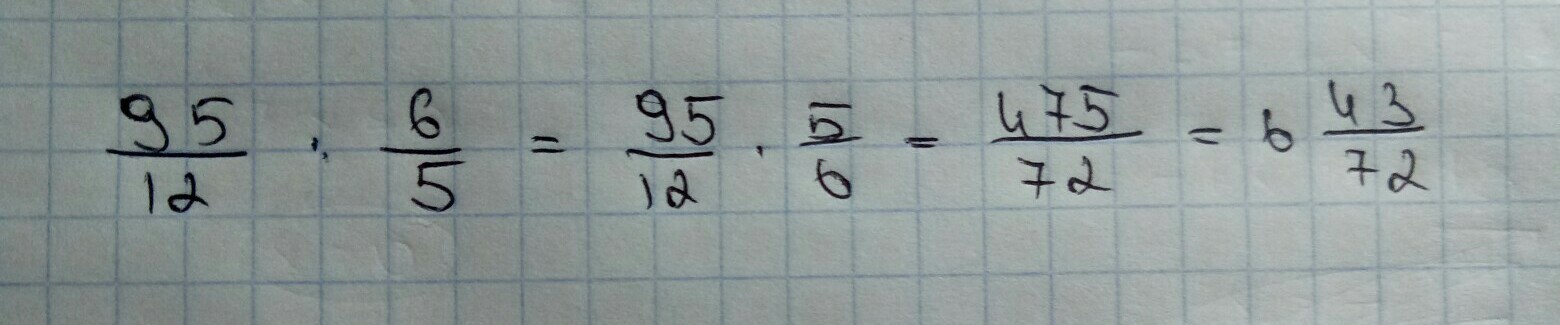 95/12 : 6/5 = 95/12 · 5/6 = 475/72 = 6 43/72